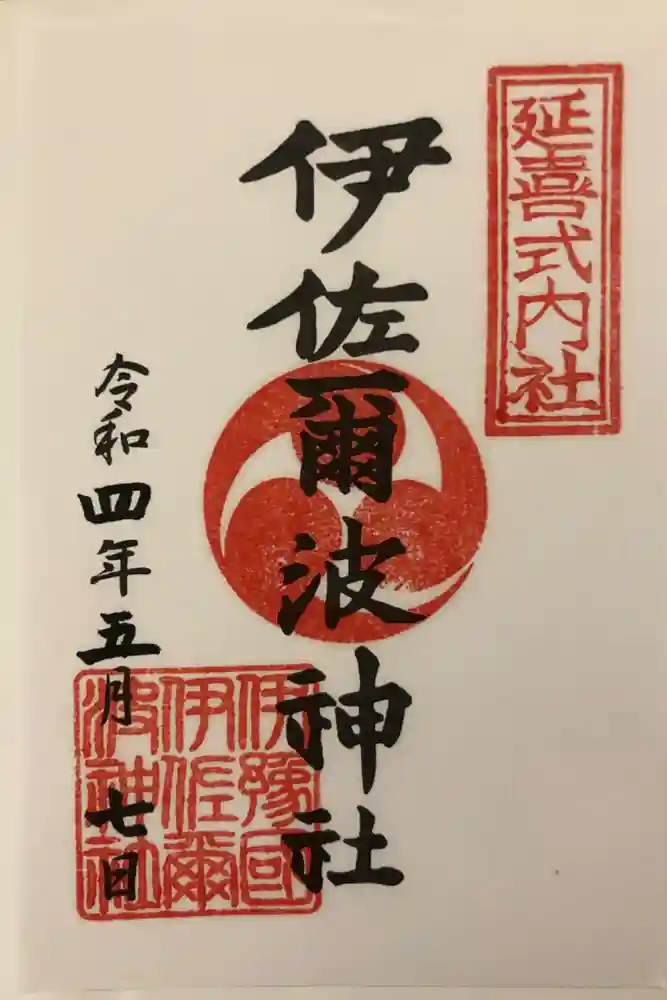 延喜式内社
伊佐爾波神社
令和四年五月七日
伊豫國
伊佐爾
波神社